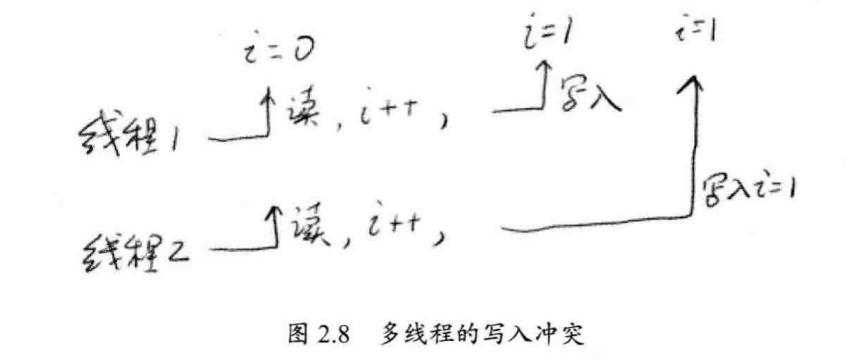 i=0 i=1 i=1
线程1 读, i++, 写入
写入i=1
线程2 读, i++,
图 2.8 多线程的写入冲突